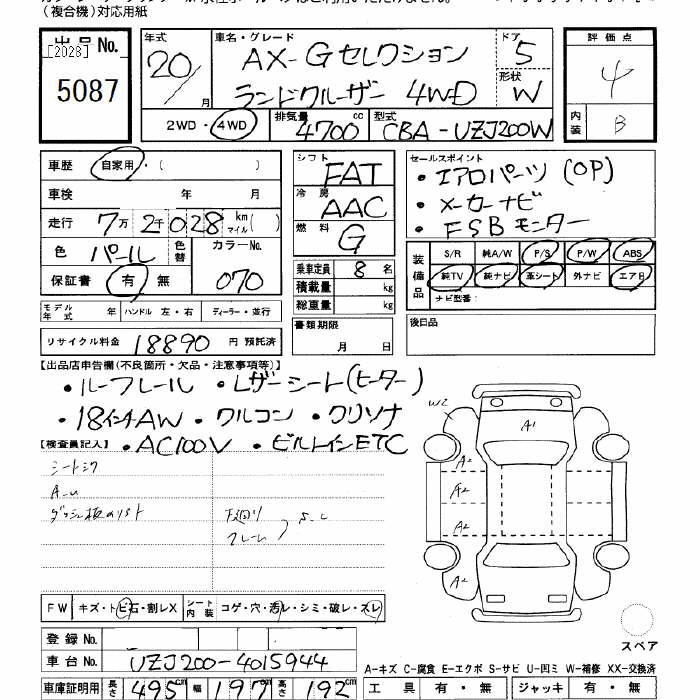 (複合機)対応用紙
出品No.
[2028]
5087
年式
20/
月
車名・グレード
AX-Gセレクション
ランドクルーザー 4WD
ドア
5
形状
W
評価点
4
内装
B
2WD・4WD
排気量
4700 cc
型式
CBA-UZJ200W
車歴
自家用・( )
車検
年 月
走行
7万2千028 km マイル( )
色
パール
色替
カラーNo.
070
保証書
有 ・ 無
モデル年式
年
ハンドル 左・右
ディーラー・並行
リサイクル料金 18890 円 預託済
シフト
FAT
冷房
AAC
燃料
G
乗車定員 8 名
積載量 kg
総重量 kg
書類期限
月 日
セールスポイント
・エアロパーツ(OP)
・メーカーナビ
・FSBモニター
装備品
S/R 純A/W P/S P/W ABS
純TV 純ナビ 革シート 外ナビ エア日
ナビ型番:
後日品
【出品店申告欄(不良箇所・欠品・注意事項等)】
・ルーフレール ・レザーシート(ヒーター)
・18インチAW ・クルコン ・クリソナ
【検査員記入】 ・AC100V ・ビルトインETC
シートシワ
下廻り
フレーム
W2
A1
A2
A2
A2
A2
FW キズ・トビ石・割レX
シート内装 コゲ・穴・汚レ・シミ・破レ・スレ
登録No.
車台No. UZJ200-4015944
車庫証明用 長さ 495 cm 幅 197 cm 高さ 192 cm
スペア
A-キズ C-腐食 E-エクボ S-サビ U-凹ミ W-補修 XX-交換済
工具 有・無 ジャッキ 有・無